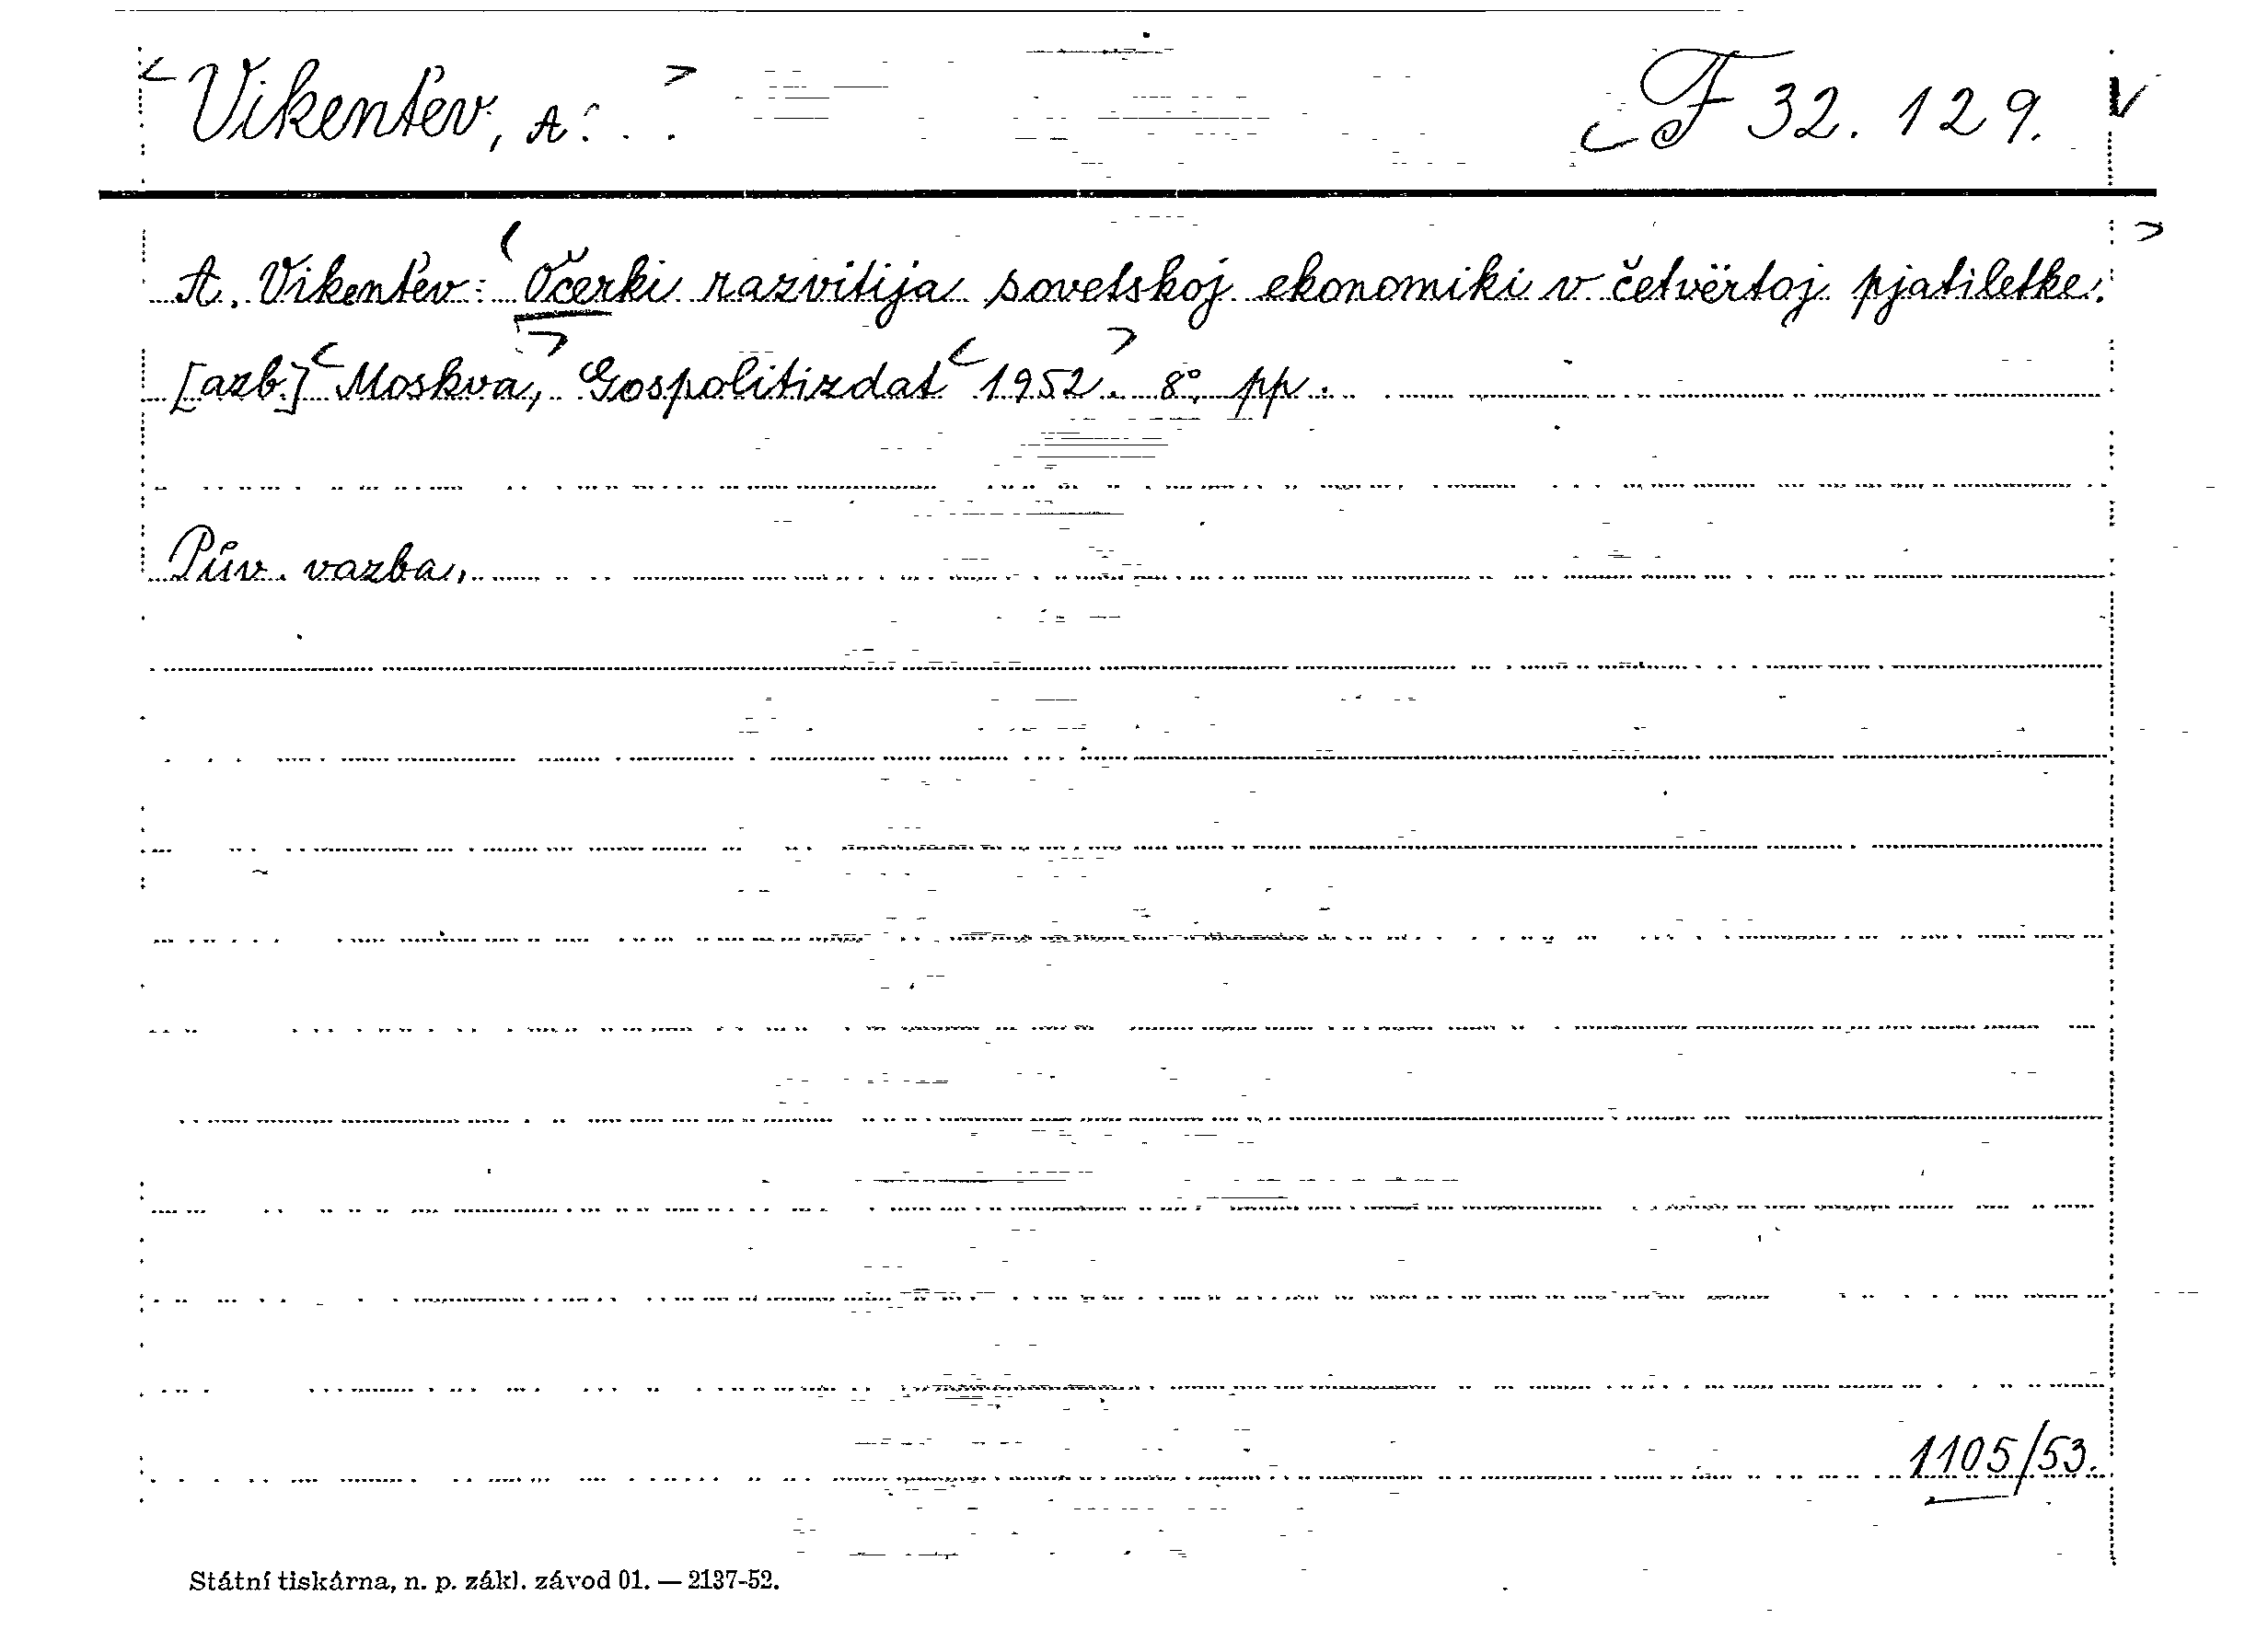 Vikenťev, A. . . F 32.129.
A. Vikenťev: Očerki razvitija sovetskoj ekonomiki v četvërtoj pjatiletke.
[azb.] Moskva, Gospolitizdat 1952. 8° pp.
Pův. vazba.
1105/53.
Státní tiskárna, n. p. zákl. závod 01. — 2137-52.